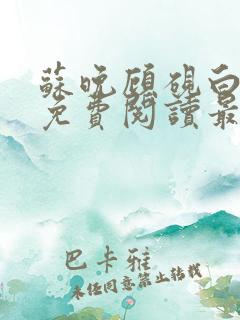 蘇晚顧硯白
免費閱讀最
巴卡雅
未經同意禁止轉載